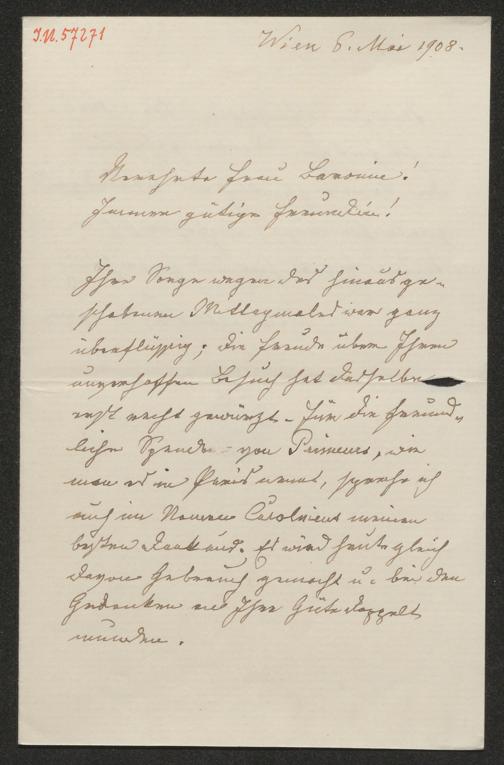 I.N. 57271
Wien 6. Mai 1908.
Verehrte Frau Baronin!
Immer gütige Freundin!
Ihre Sorge wegen des hinausge-
schobenen Mittagmales war ganz
überflüssig; die Freude über Ihren
unverhofften Besuch hat dasselbe
erst recht gewürzt. Für die freund-
liche Spende von Primeurs, wie
man es in Paris nennt, spreche ich
auch im Namen Carolinens meinen
besten Dank aus. Es wird heute gleich
davon Gebrauch gemacht u. bei dem
Gedenken an Ihre Güte doppelt
munden.